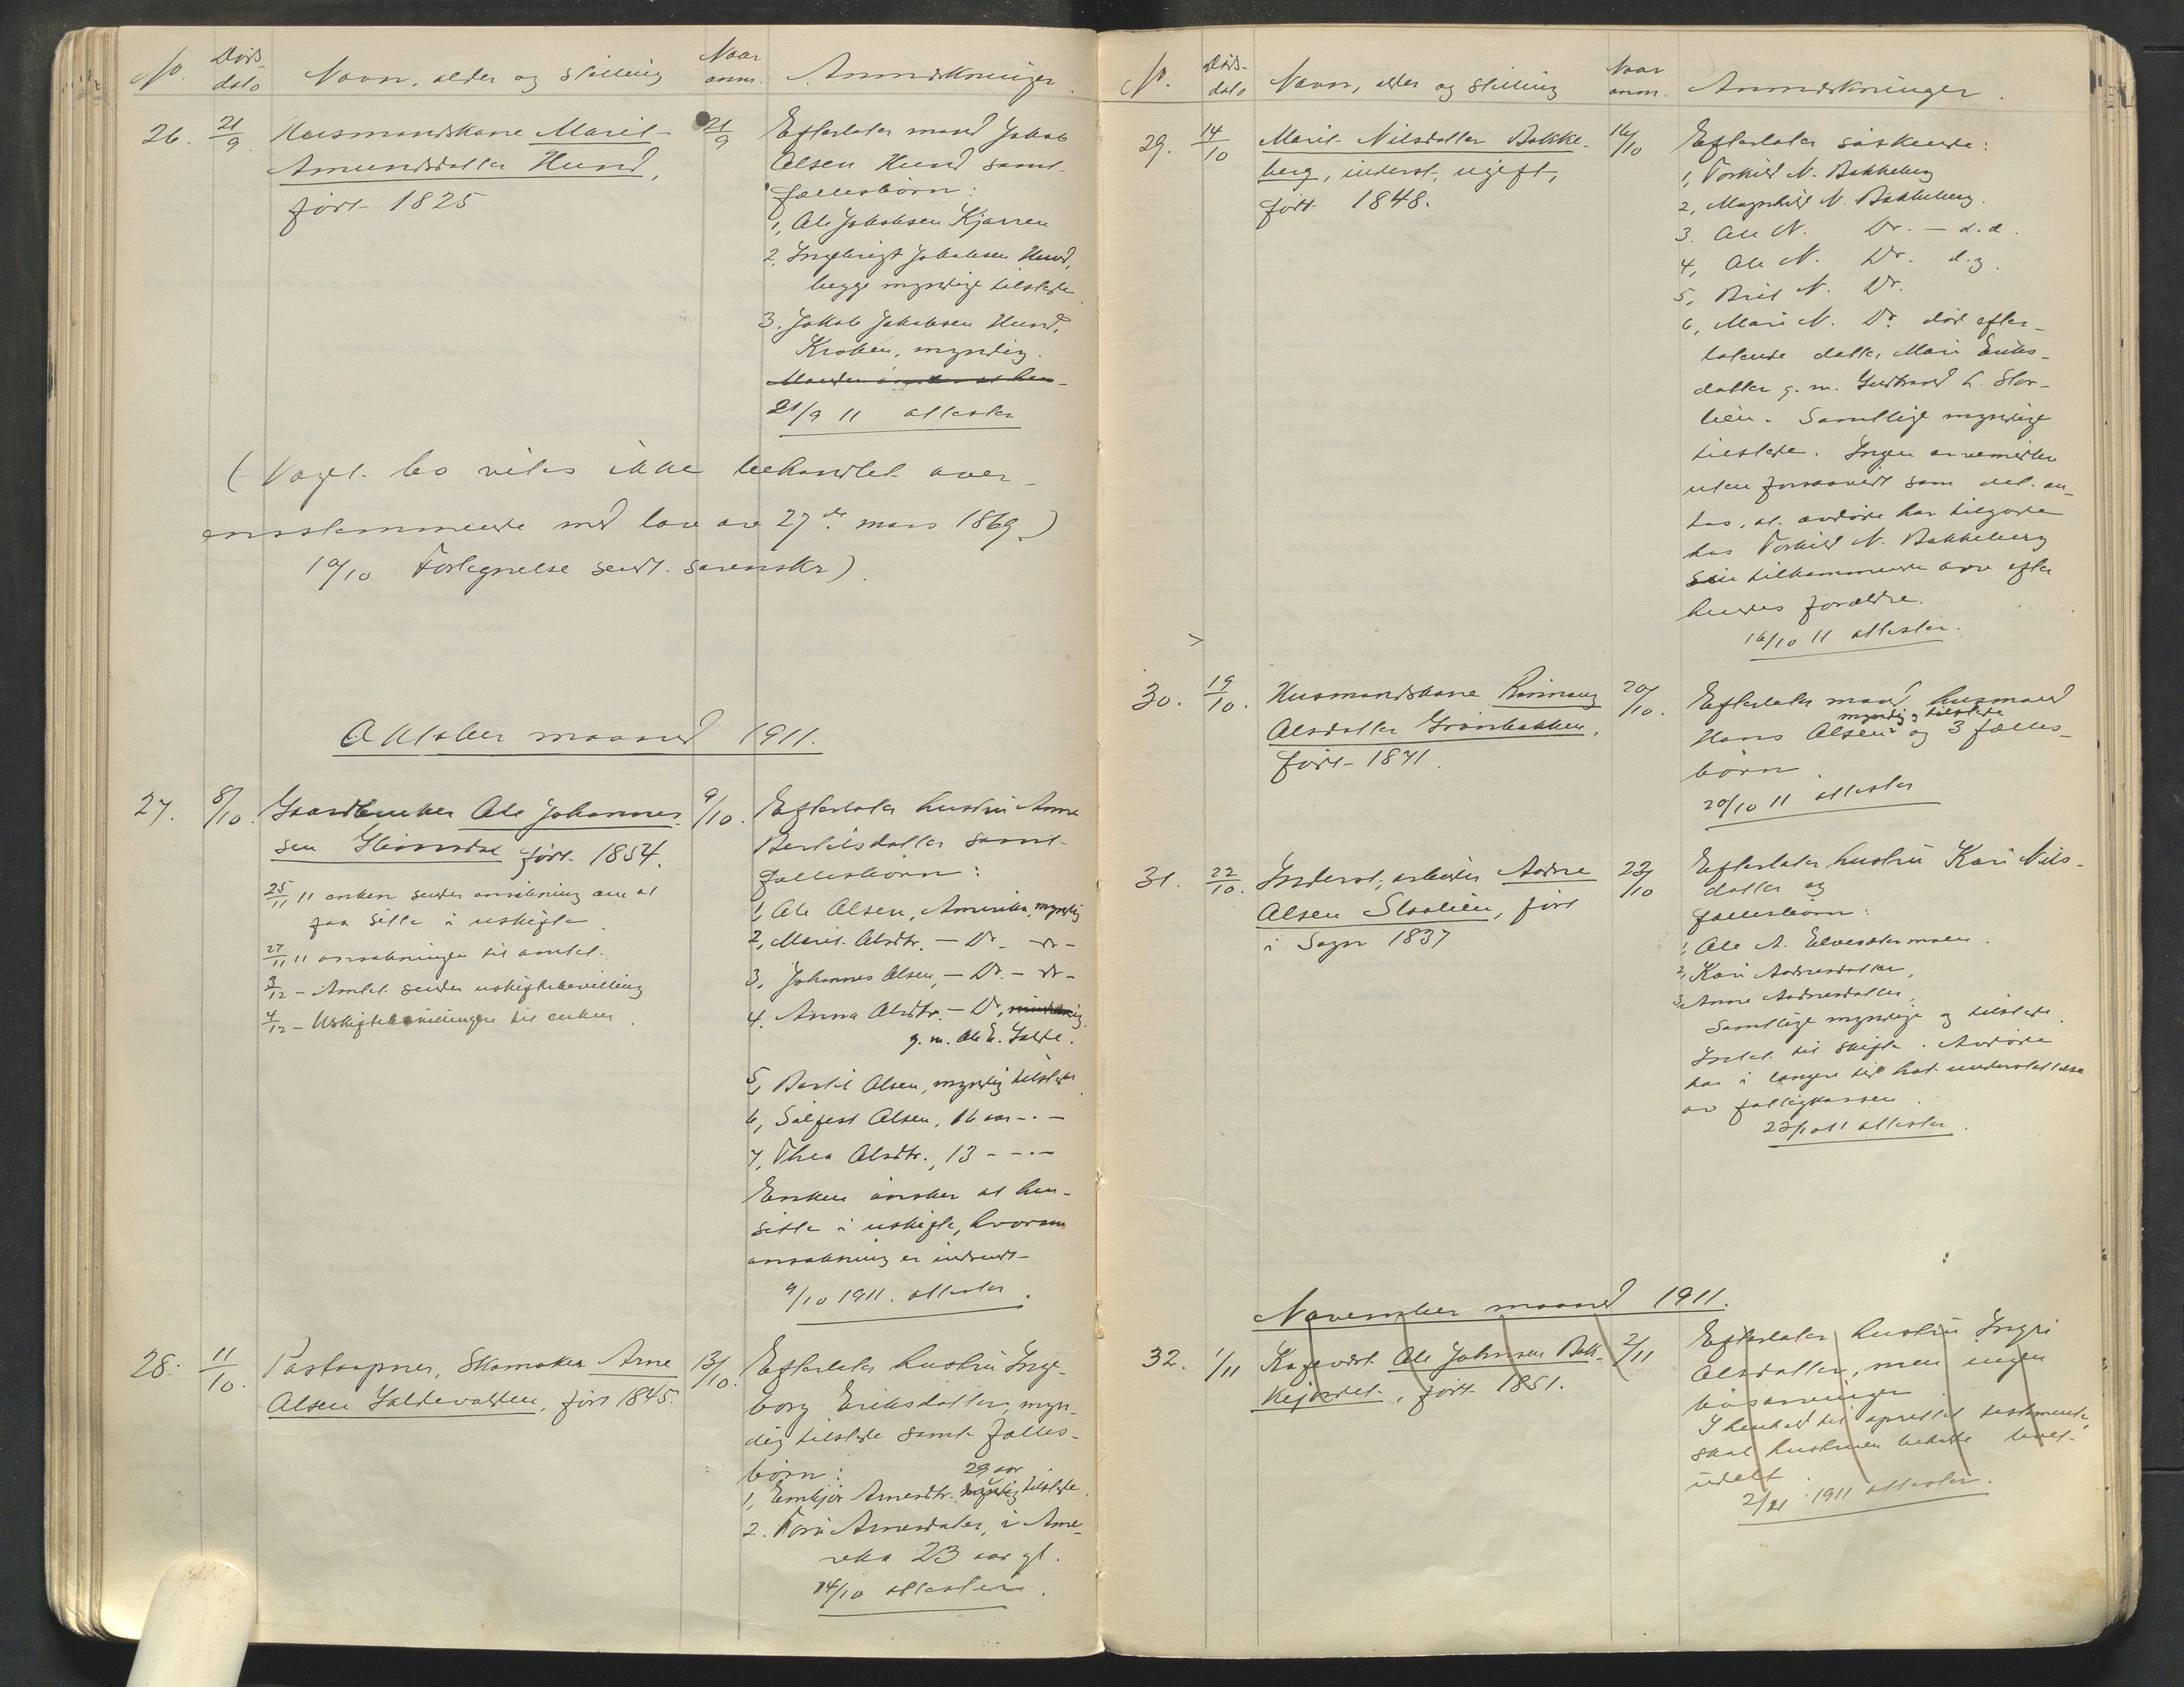 No.
Døds-
dato
Navn, alder og stilling
Naar
anm.
Anmerkninger.
26.
21/9
Husmandskone Marit
Amundsdatter Hund,
født 1825
21/9
Efterlater mand Jakob
Olsen Hund samt
fællesbörn:
1, Ole Jakobsen Kjærren
2, Ingebrigt Jakobsen Hund,
begge myndige tilstede
3. Jakob Jakobsen Hund,
Kroken, myndig.
21/9 11 attester
(Vogt. bo vites ikke behandlet over-
ensstemmende med lov av 27de mars 1869.)
10/10 Fortegnelse sendt sorenskr)
Oktober maaned 1911.
27.
8/10.
Gaardbruker Ole Johannes-
sen Glimsdal født 1854.
25/11 11 enken sender ansökning om at
faa sitte i uskifte
27/11 11 ansökningen til amtet.
2/12 - Amtet sender uskiftebevilling
4/12 - Uskiftebevillingen til enken.
9/10.
Efterlater hustru Anne
Bertilsdatter samt
fællesbörn:
1, Ole Olsen, Amerika, myndig
2, Marit Olsdtr. - Do. - do -
3, Johannes Olsen, - Do. - do -
4. Anna Olsdtr. - Do,
g. m. Ole E. Galde.
5, Bertil Olsen, myndig tilstede
6, Sølfest Olsen, 16 aar - . -
7, Thea Olsdtr., 13 - - . -
Enken önsker at hen-
sitte i uskifte, hvorom
ansökning er indsendt
9/10 1911. attester.
28.
11/10.
Postaapner, Skomaker Arne
Olsen Galdevolden, født 1845.
13/10.
Efterlater hustru Inge-
borg Eriksdatter, myn-
dig tilstede samt fælles-
börn:
29 aar
1, Embjør Arnesdtr. myndig tilstede
2. Toru Arnesdatter, i Ame-
rika 23 aar gl.
14/10 attester.
No.
Døds-
dato
Navn, alder og stilling
Naar
anm.
Anmerkninger.
29.
14/10
Marit Nilsdatter Bakke-
berg, inderst, ugift,
født 1848.
16/10
Efterlater söskende:
1, Torkild N. Bakkeberg
2, Magnhild N. Bakkeberg.
3. Ole N. Do. - d.e.
4, Ole N. Do. d.y.
5, Brit N. Do.
6, Mari N. Do. död efter-
latende datter Mari Eriks-
datter g. m. Gudbrand L. Slor-
lien. Samtlige myndige
tilstede. Ingen arvemidler
uten forsaavidt som det an-
tas, at avdöde har tilgode
hos Torkild N. Bakkeberg
sin tilkommende arv efter
hendes forældre.
16/10 11 attester.
>
30.
19/10.
Husmandskone Rönnaug
Olsdatter Grönbakken,
født 1841.
20/10.
Efterlater mand husmand
myndig og tilstede
Hans Olsen og 3 fælles-
börn
20/10 11 attester
31.
22/10.
Inderst, arbeider Andre
Olsen Slaalien, født
i Sogn 1837
23/10
Efterlater hustru Kari Nils-
datter og
fællesbörn:
1, Ole A. Elvesætermoen.
2, Kari Andresdatter,
3, Anne Andresdatter,
Samtlige myndige og tilstede.
Intet til skifte. Avdöde
har i længere tid hat understöttelse
av fattigkassen.
23/10 11 attester.
November maaned 1911.
32.
1/11
Ole Johnsen Bak-
kejordet, født 1851.
2/11
Efterlater hustru Ingri
Olsdatter, men ingen
livsarvinger.
I henhold til oprettet testamente,
skal hustruen beholde boet
udelt.
2/11 1911 attester.